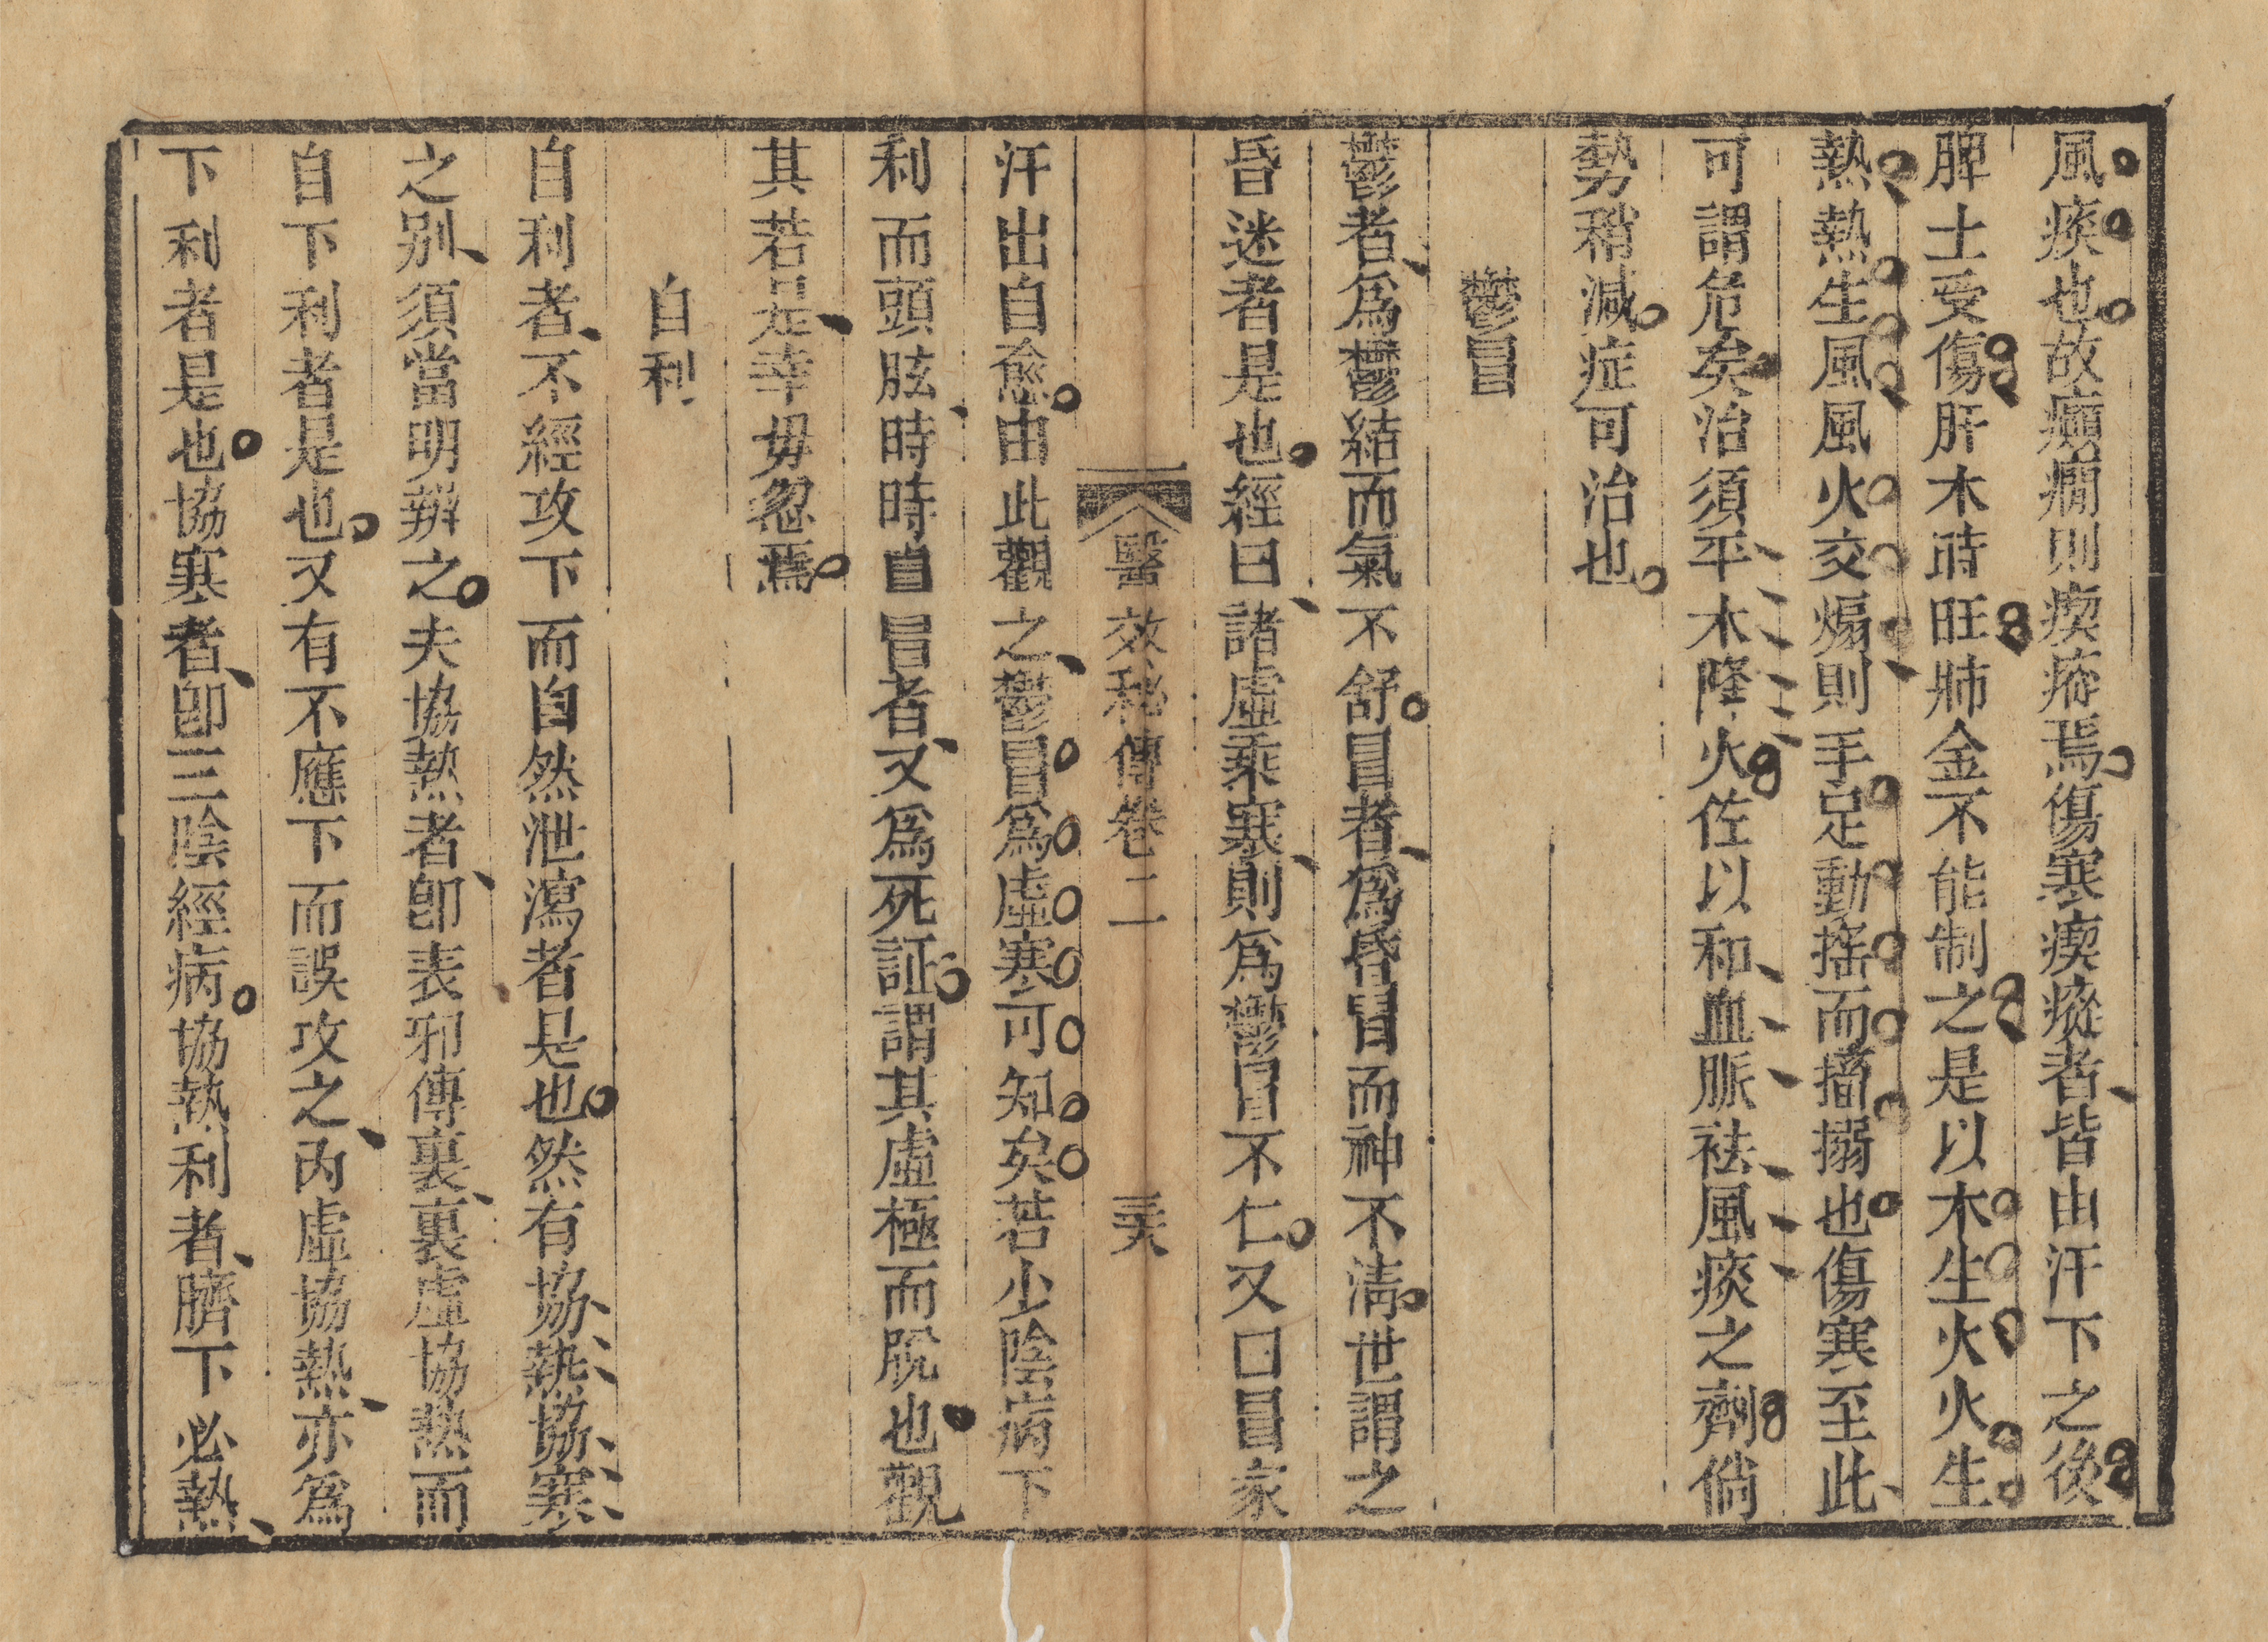 風疾也故癲癇則瘈瘲焉傷寒瘈瘲者皆由汗下之後
脾土受傷肝木時旺肺金不能制之是以木生火火生
熱熱生風風火交煽則手足動搖而搐搦也傷寒至此
可謂危矣治須平木降火佐以和血脈祛風痰之劑倘
勢稍減症可治也
鬱冒
鬱者爲鬱結而氣不舒冒者爲昏冒而神不清世謂之
昏迷者是也經曰諸虛乘寒則爲鬱冒不仁又曰冒家
醫效秘傳卷二
三六
汗出自愈由此觀之鬱冒爲虛寒可知矣若少陰病下
利而頭眩時時自冒者又爲死証謂其虛極而脫也觀
其若是幸毋忽焉
自利
自利者不經攻下而自然泄瀉者是也然有協熱協寒
之别須當明辨之夫協熱者卽表邪傳裏裏虛協熱而
自下利者是也又有不應下而誤攻之內虛協熱亦爲
下利者是也協寒者卽三陰經病協熱利者臍下必熱